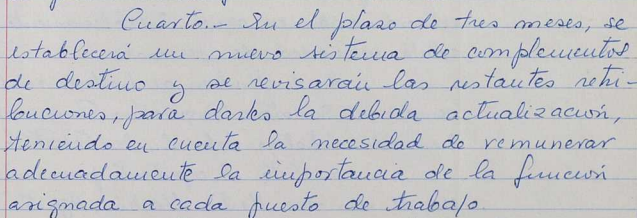 Cuarto.- En el plazo de tres meses, se
establecerá un nuevo sistema de complementos
de destino y se revisarán las restantes retri-
buciones, para darles la debida actualización,
teniendo en cuenta la necesidad de remunerar
adecuadamente la importancia de la función
asignada a cada puesto de trabajo